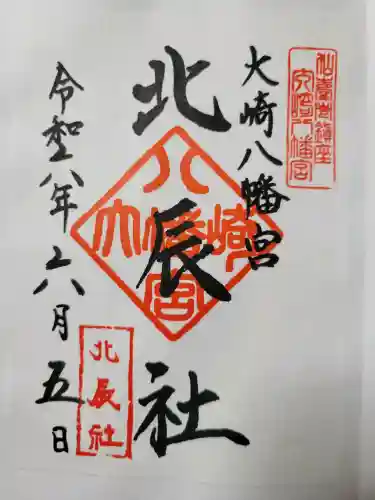 仙臺巷鎮座
大崎八幡宮
大崎八幡宮
北辰社
八幡宮
大崎
北辰社
令和八年六月五日